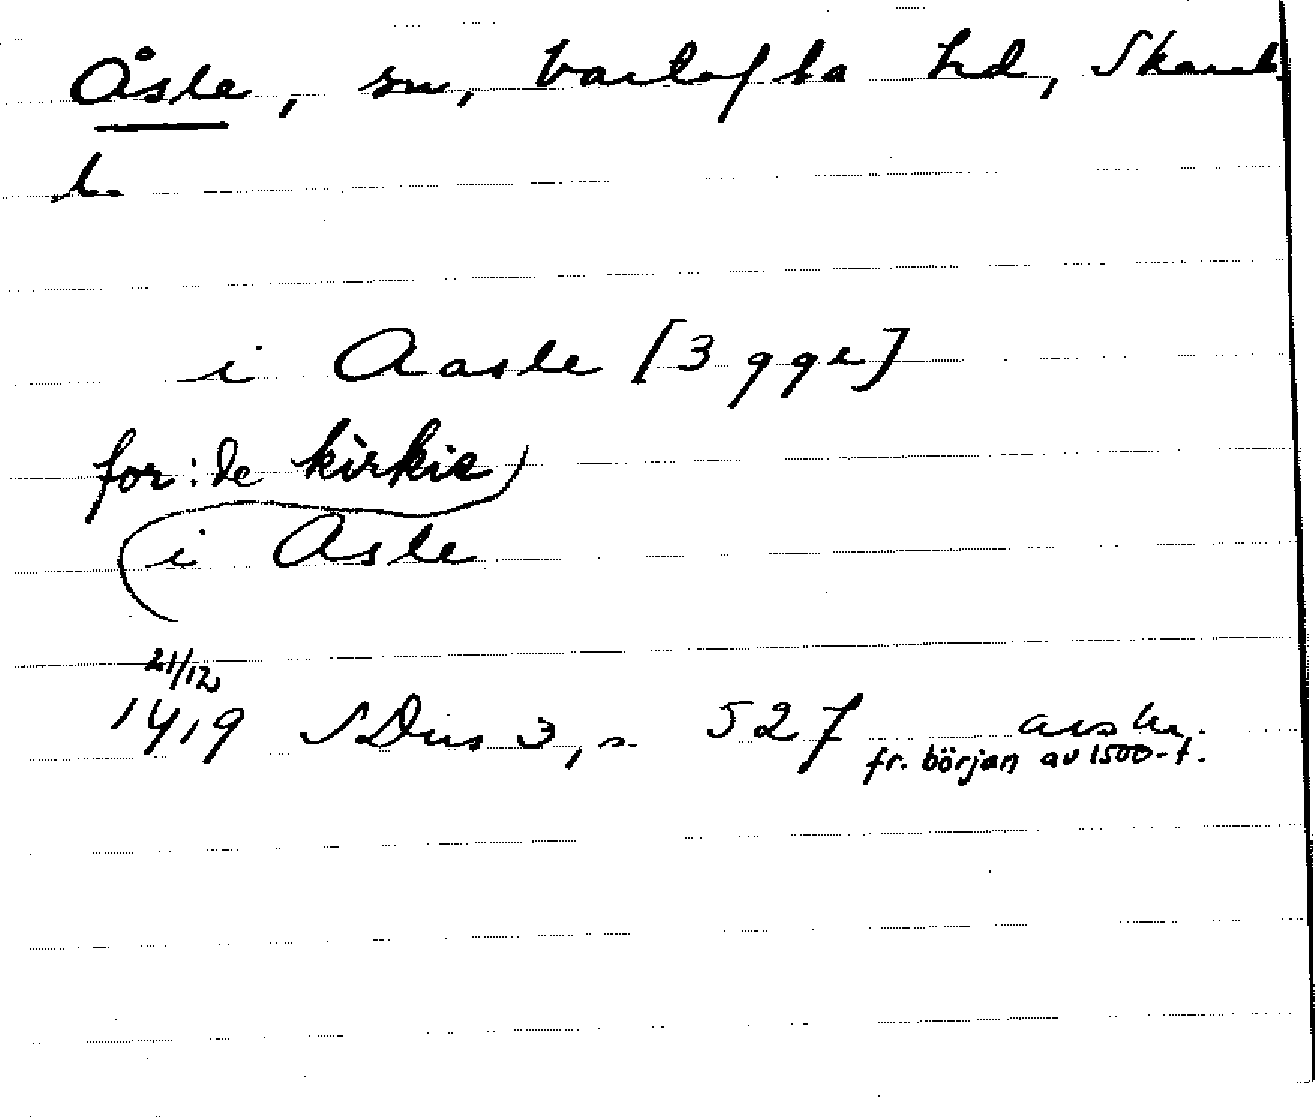 Åsle, sn, Vartofta hd, Skarab.
l.
i Aasle [3 ggr]
for:de kirkie
i Asle
21/12
1419 SDns 3, s. 527 avskr.
fr. början av 1500-t.